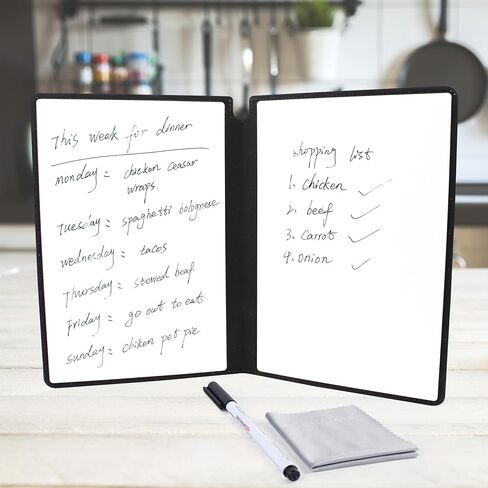 This week for dinner
monday = chicken ceasar
wraps.
Tuesday = spaghetti bolognese
wednesday = tacos
Thursday = stewed beaf
Friday = go out to eat
sunday = chiken pot pie
shopping list
1. chicken ✓
2. beef ✓
3. carrot ✓
4. onion ✓